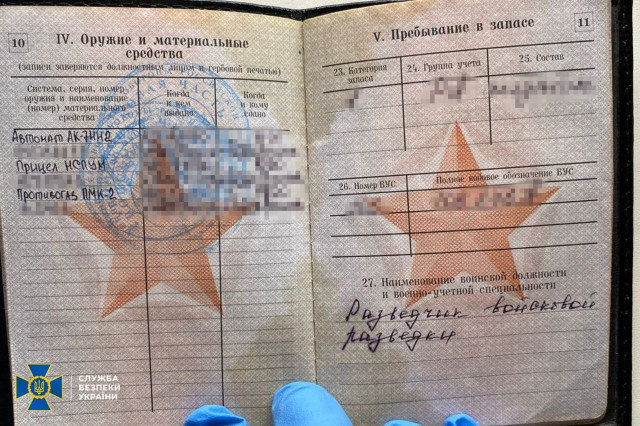 10
IV. Оружие и материальные
средства
(записи заверяются должностным лицом и гербовой печатью)
Система, серия, номер
оружия и наименование
(номер) материального
средства
Когда
и кем
выдано
Когда
и кому
сдано
Автомат АК-74Н2
Прицел НСПУМ
Противогаз ПМК-2
V. Пребывание в запасе
11
23. Категория
запаса
24. Группа учета
25. Состав
26. Номер ВУС
Полное кодовое обозначение ВУС
27. Наименование воинской должности
и военно-учетной специальности
Разведчик войсковой
разведки
СЛУЖБА
БЕЗПЕКИ
УКРАЇНИ